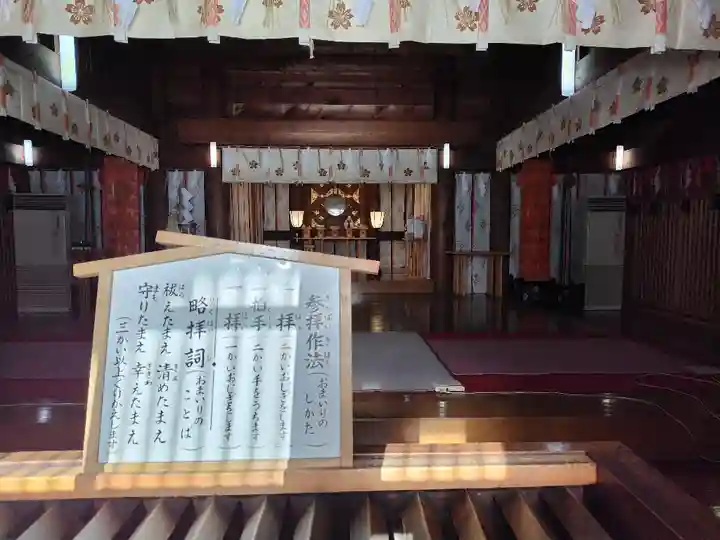 参拝作法(おまいりのしかた)
一 拝 二かいおじぎをします
一 拍手 二かい手をうちます
一 拝 一かいおじぎをします
略拝詞(おまいりのことば)
祓えたまえ 清めたまえ
守りたまえ 幸えたまえ
(三かい以上くりかえします)